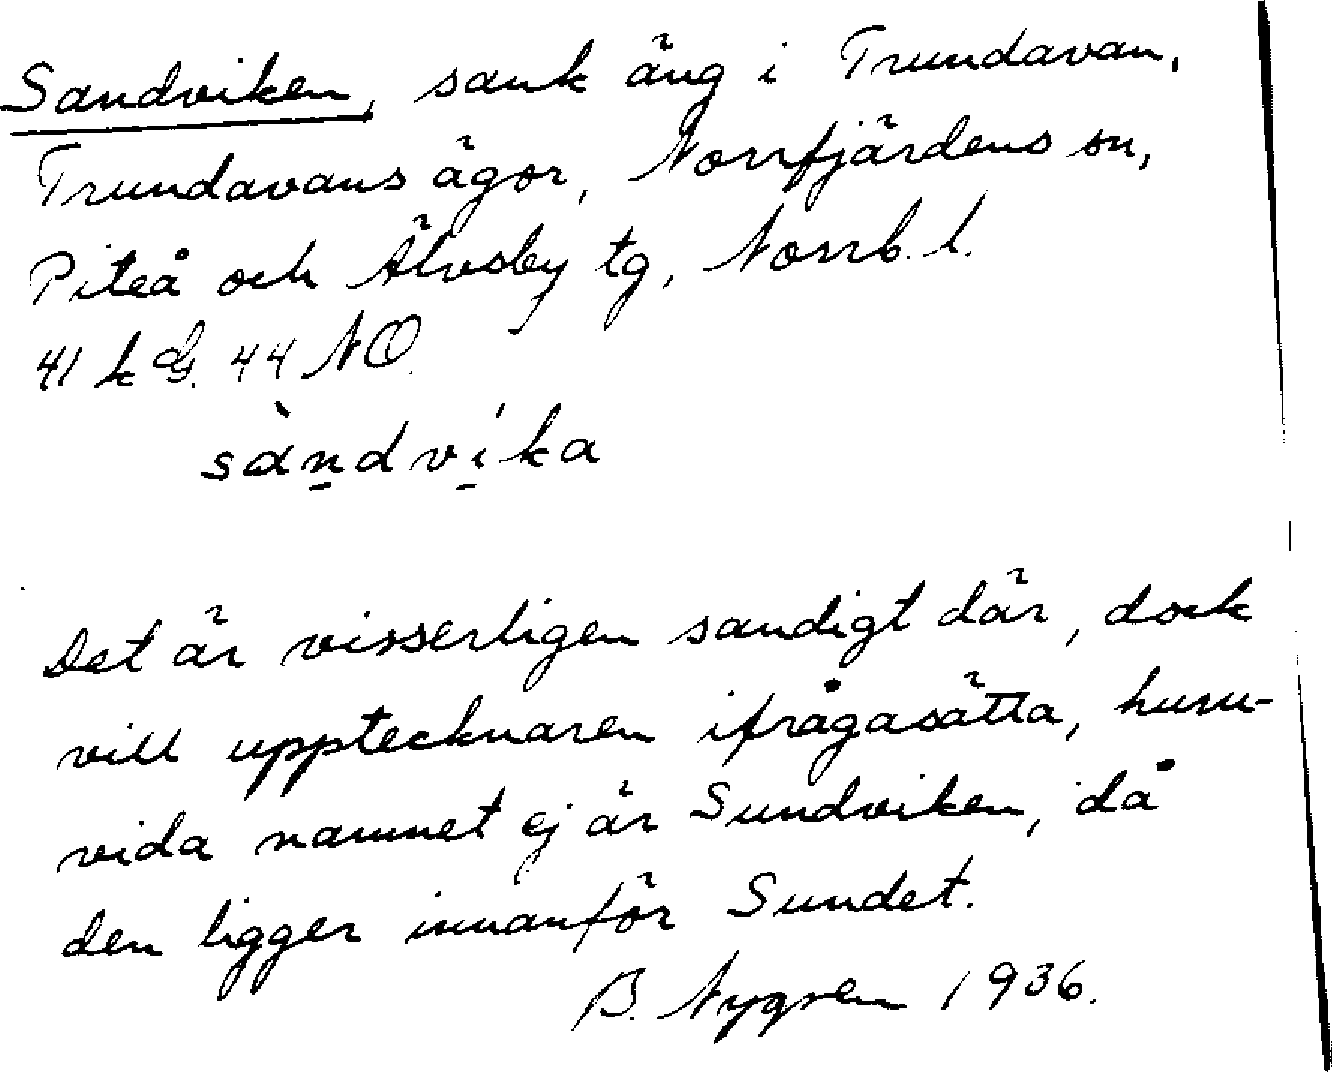 Sandviken, sank äng i Trundavan,
Trundavans ägor, Norrfjärdens sn,
Piteå och Älvsby tg, Norrb. l.
41 k G. 44 NO.
sàṉdví̱ka
Det är visserligen sandigt där, dock
vill upptecknaren ifrågasätta, huru-
vida namnet ej är Sundviken, då
den ligger innanför Sundet.
B. Nygren 1936.